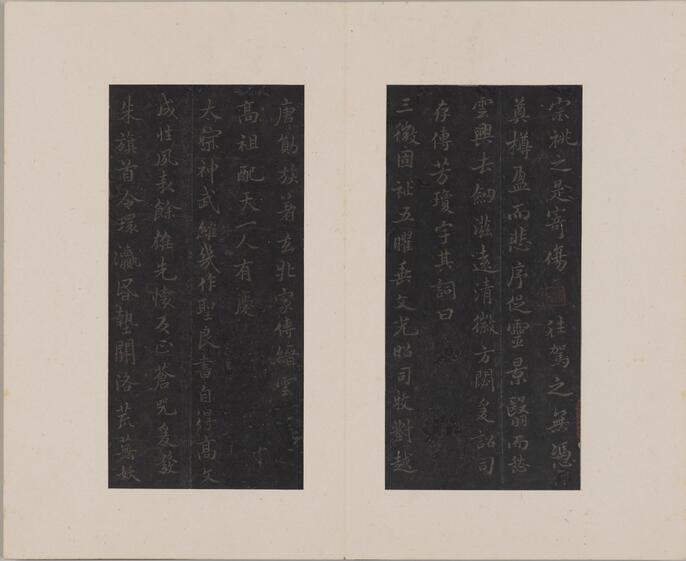 宗祧之是寄傷往駕之無憑
奠樽盈而悲序促靈景翳而愁
雲興去劔滋遠清徽方閟爰詔司
存傳芳瓊字其詞曰
三徵固祉五曜垂文光昭司牧對越
唐勛族著玄丘家傳縉雲
高祖配天一人有慶
太宗神武維幾作聖良書自得高文
成性夙表餘雄先懷反正蒼兕爰發
朱旗首令環瀛昏墊關洛荒蕪妖